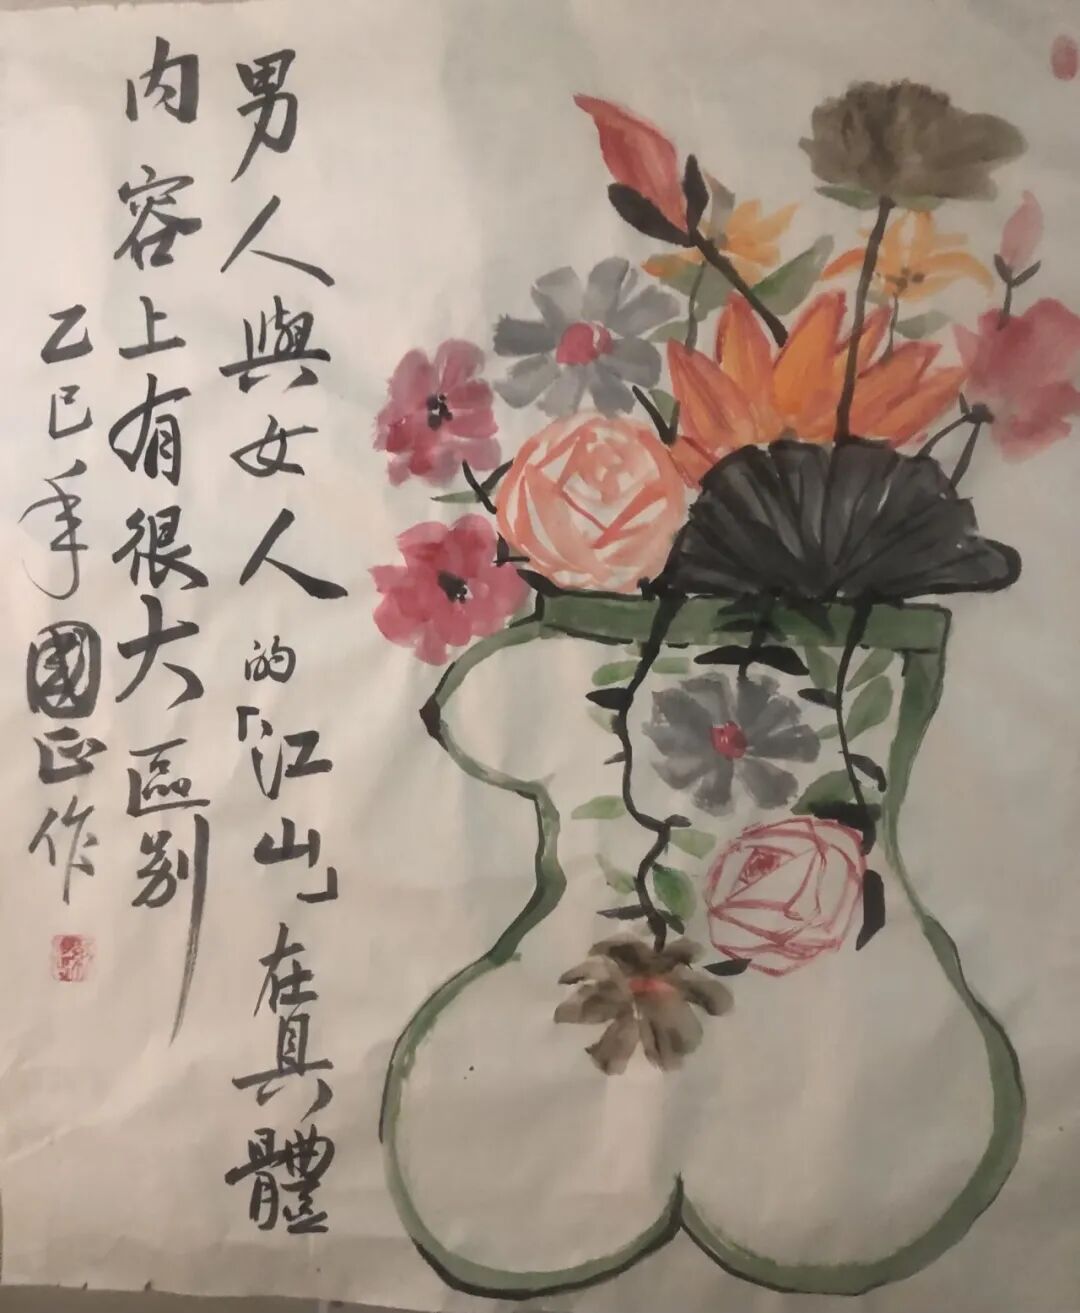 男人與女人的「江山」在具體
内容上有很大區别
乙巳年國正作